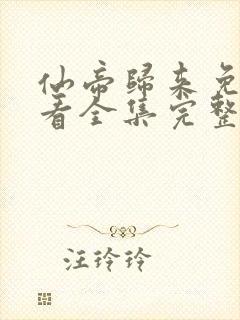 仙帝歸来免
看全集完整
汪玲玲